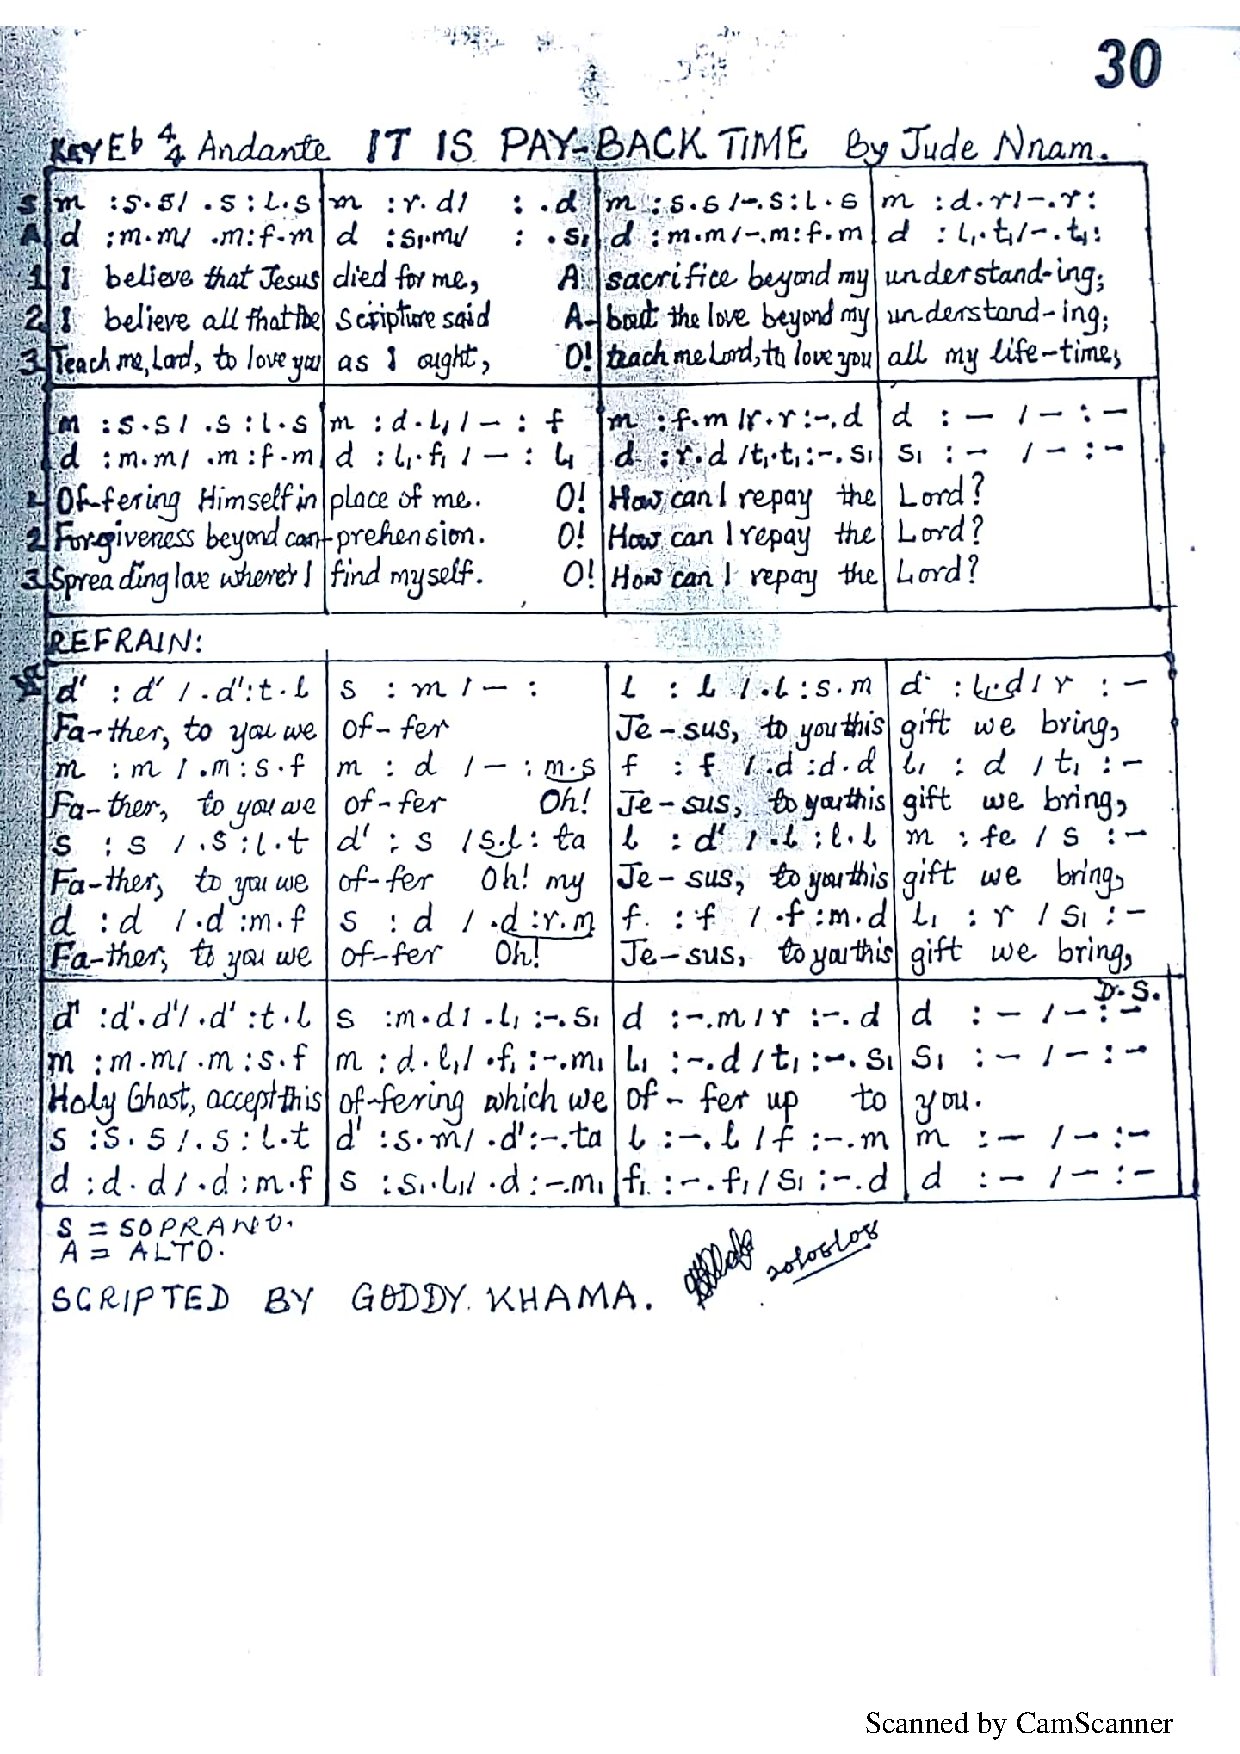 30
KEY Eb 4/4 Andante IT IS PAY-BACK TIME By Jude Nnam.
S m :s.s/ .s:l.s m :r.d/ : .d m :s.s/-.s:l.s m :d.r/-.r:
A d :m.m/ .m:f.m d :s₁.m₁/ : .s₁ d :m.m/-.m:f.m d :l₁.t₁/-.t₁:
1 I believe that Jesus died for me, A sacrifice beyond my understand-ing;
2 I believe all that the Scripture said A-bout the love beyond my understand-ing;
3 Teach me, Lord, to love you as I ought, O! teach me Lord, to love you all my life-time;
m :s.s/ .s:l.s m :d.l₁/-: f m :f.m/r.r:-.d d :-/-:-
d :m.m/ .m:f.m d :l₁.f₁/-: l₁ d :r.d/t₁.t₁:-.s₁ s₁ :-/-:-
1 Of-fering Himself in place of me. O! How can I repay the Lord?
2 Forgiveness beyond com-prehension. O! How can I repay the Lord?
3 Spreading love where'er I find myself. O! How can I repay the Lord?
REFRAIN:
d' :d'/ .d':t.l s :m/-: l :l/ .l:s.m d :l₁.d/r :-
Fa-ther, to you we of-fer Je-sus, to you this gift we bring,
m :m/ .m:s.f m :d/-:m.s f :f/ .d:d.d l₁ :d/t₁ :-
Fa-ther, to you we of-fer Oh! Je-sus, to you this gift we bring,
s :s/ .s:l.t d' :s/s.l:ta l :d'/ .l:l.l m :fe/s :-
Fa-ther, to you we of-fer Oh! my Je-sus, to you this gift we bring,
d :d/ .d:m.f s :d/ .d:r.m f. :f/ .f:m.d l₁ :r/s₁ :-
Fa-ther, to you we of-fer Oh! Je-sus, to you this gift we bring,
D.S.
d' :d'.d'/ .d':t.l s :m.d/ .l₁:-.s₁ d :-.m/r :-.d d :-/-:-
m :m.m/ .m:s.f m :d.l₁/ .f₁:-.m₁ l₁ :-.d/t₁:-.s₁ s₁ :-/-:-
Holy Ghost, accept this of-fering which we of-fer up to you.
s :s.s/.s:l.t d' :s.m/ .d':-.ta l :-.l/f :-.m m :-/-:-
d :d.d/ .d:m.f s :s₁.l₁/ .d:-.m₁ f₁ :-.f₁/s₁:-.d d :-/-:-
S = SOPRANO.
A = ALTO.
SCRIPTED BY GODDY KHAMA.
Scanned by CamScanner